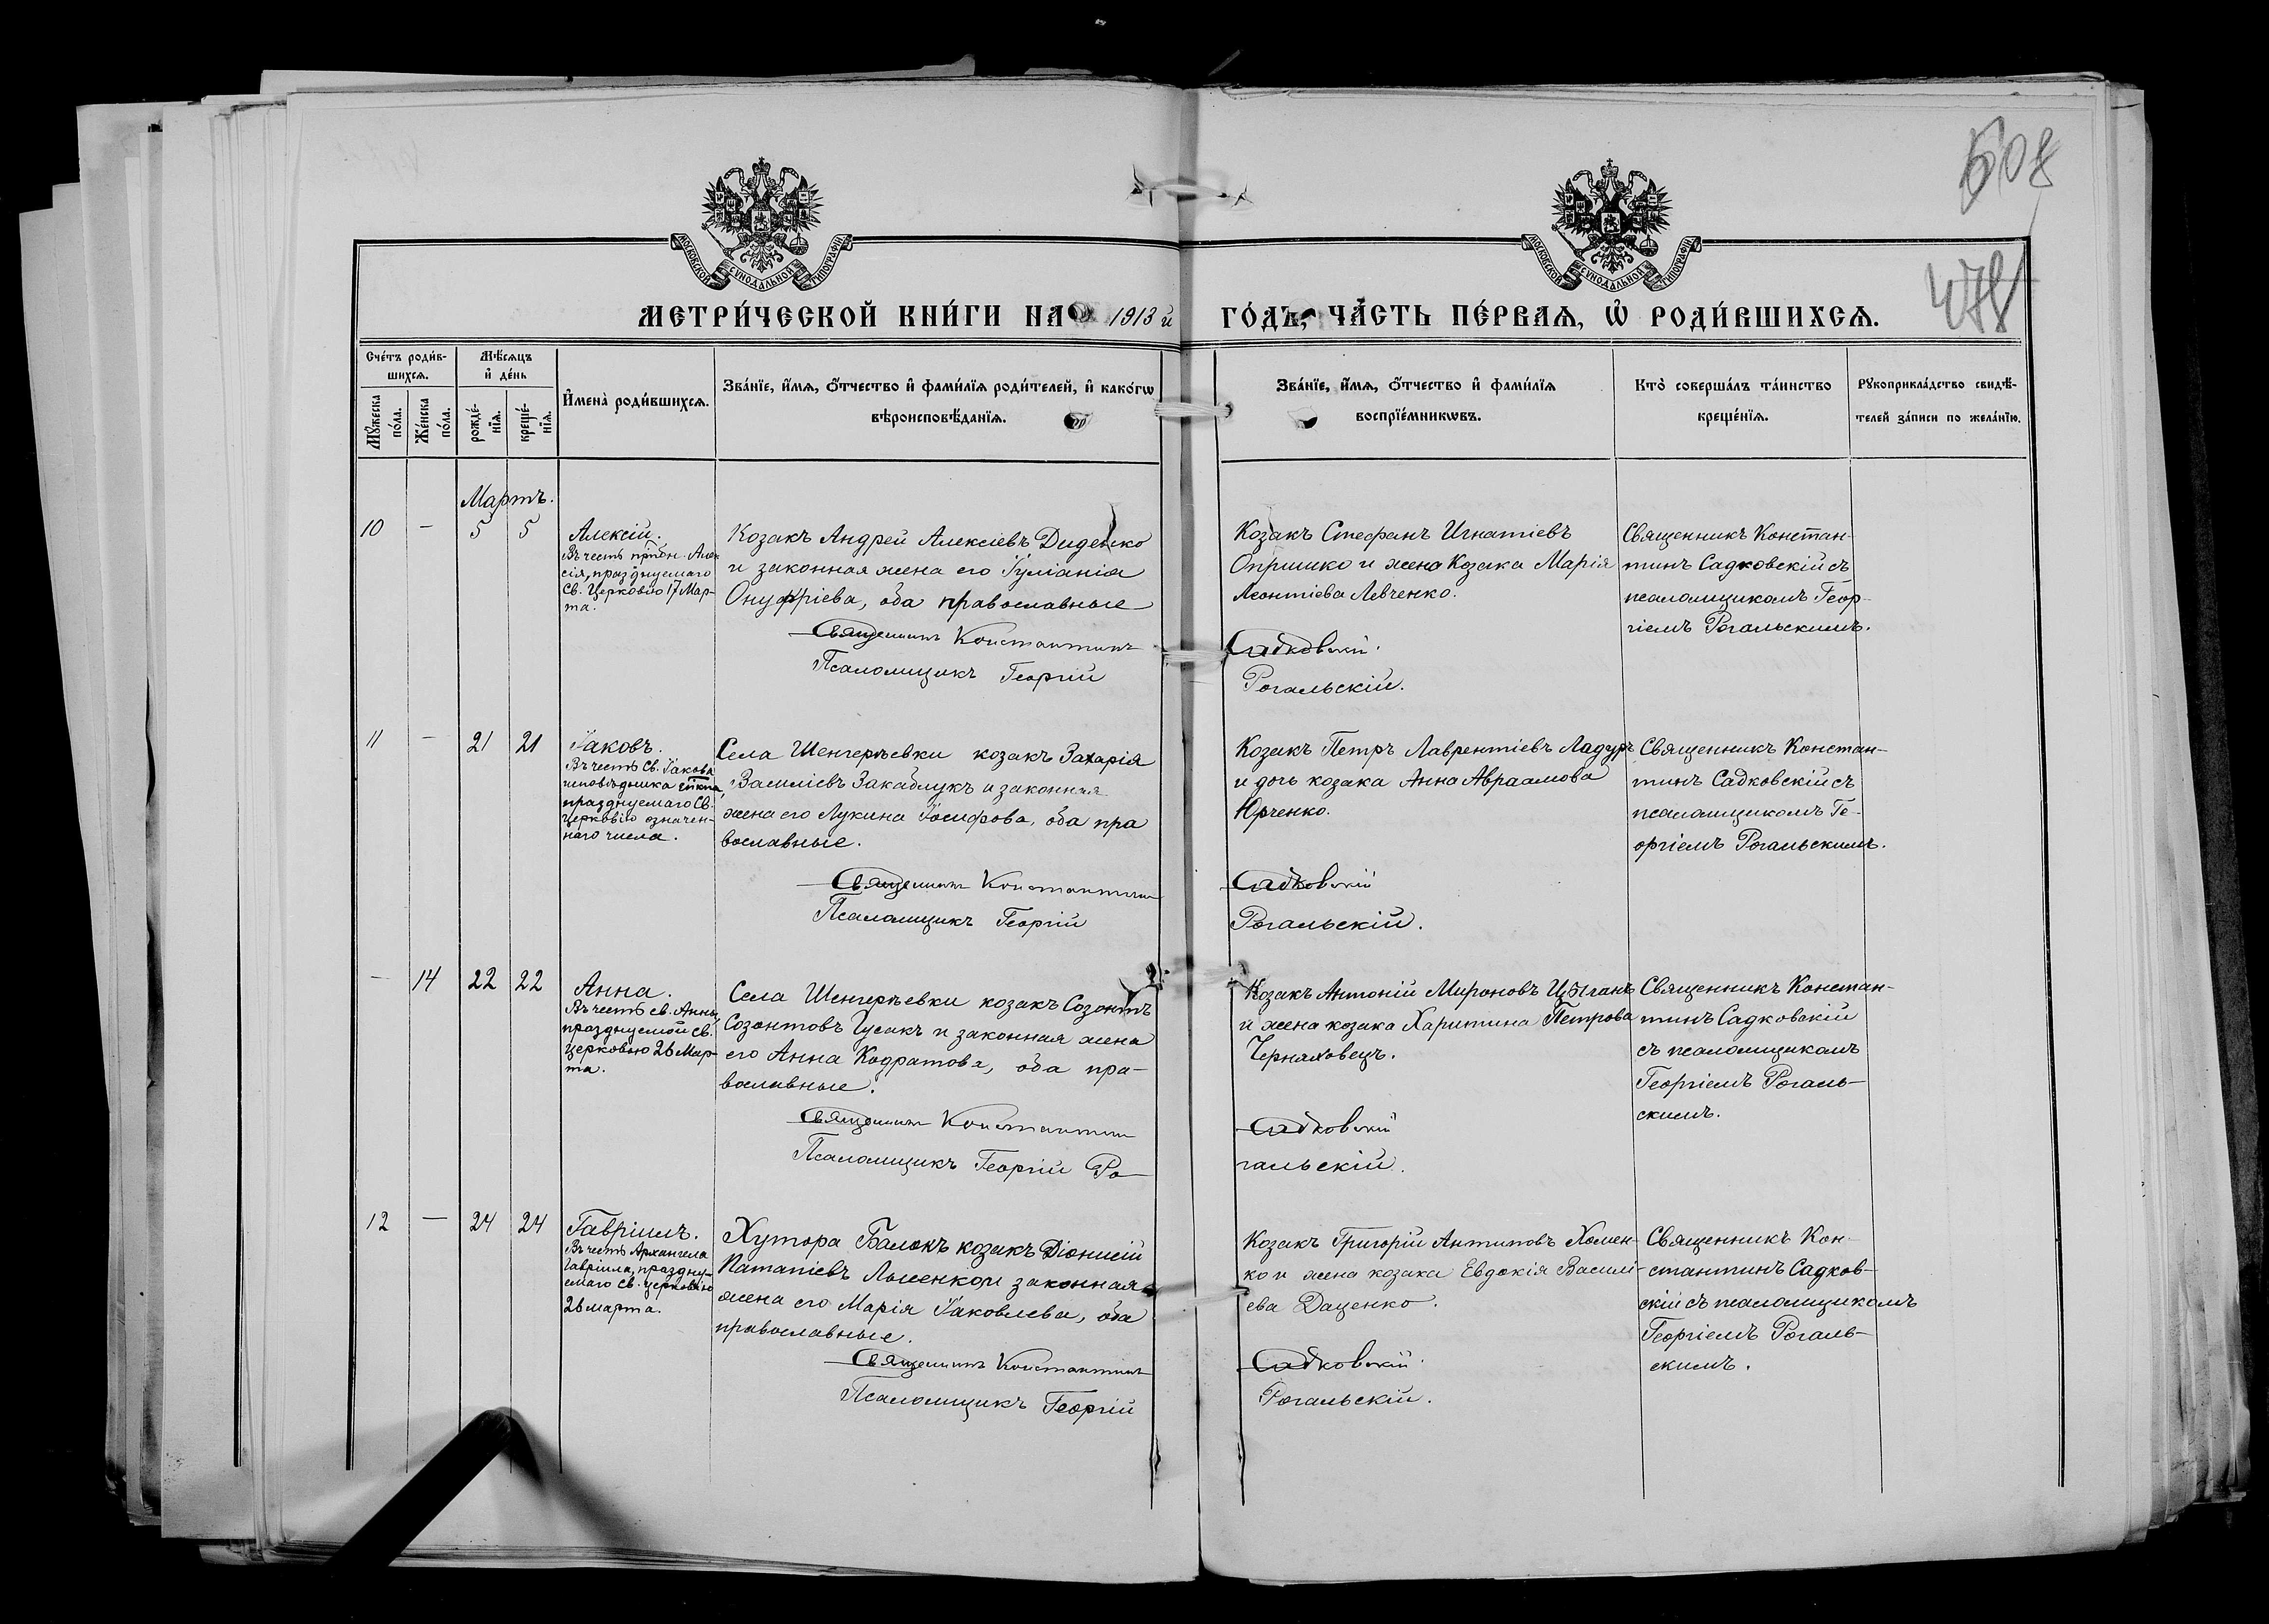 508
478
МОСКОВСКОЙ СѴНОДАЛЬНОЙ ТИПОГРАФІИ
МОСКОВСКОЙ СѴНОДАЛЬНОЙ ТИПОГРАФІИ
МЕТРИ́ЧЕСКОЙ КНИ́ГИ НА 1913 й ГО́ДЪ, ЧА́СТЬ ПЕ́РВАЯ, Ѡ҆ РОДИ́ВШИХСЯ.
Счетъ роди́в-
шихся.
Мꙋ́жеска по́ла.
Же́нска по́ла.
Мѣ́сяцъ
и҆ де́нь
рожде́-
нїя.
креще́-
нїя.
И҆мена̀ роди́вшихся.
Зва́нїе, и҆́мя, ѻ҆́тчество и҆ фами́лїя роди́телей, и҆ како́гѡ
вѣроисповѣ́данїя.
Зва́нїе, и҆́мя, ѻ҆́тчество и҆ фами́лїя
воспрїе́мникѡвъ.
Кто̀ соверша́лъ та́инство
креще́нїя.
Рꙋкоприкла́дство свидѣ́-
телей за́писи по жела́нїю.
Мартъ.
10
—
5
5
Алексій.
Въ честь прпдн. Алек
сія, празднуемаго
Св. Церковію 17 Мар-
та.
Козакъ Андрей Алексіевъ Диденко
и законная жена его Іуліанія
Онуфріева, оба православные
Священникъ Константинъ
Псаломщикъ Георгій
Козакъ Стефанъ Игнатіевъ
Опришко и жена Козака Марія
Леонтіева Левченко.
Садковскій.
Рогальскій.
Священникъ Констан-
тинъ Садковскій съ
псаломщикомъ Геор-
гіемъ Рогальскимъ.
11
—
21
21
Іаковъ.
Въ честь Св. Іакова
исповѣдника епкпа,
празднуемаго Св.
Церковію означен-
наго числа.
Села Шенгерѣевки козакъ Захарія
Василіевъ Закаблукъ и законная
жена его Лукина Іосифова, оба пра
вославные.
Священникъ Константинъ
Псаломщикъ Георгій
Козакъ Петръ Лаврентіевъ Ладуръ
и дочь козака Анна Авраамова
Юрченко.
Садковскій
Рогальскій.
Священникъ Констан-
тинъ Садковскій съ
псаломщикомъ Ге-
оргіемъ Рогальскимъ.
—
14
22
22
Анна.
Въ честь св. Анны,
празднуемой св.
церковью 26 Мар-
та.
Села Шенгерѣевки козакъ Созонтъ
Созонтовъ Гусакъ и законная жена
его Анна Кодратова, оба пра-
вославные.
Священникъ Константинъ
Псаломщикъ Георгій Ро-
Козакъ Антоній Мироновъ Цыганъ
и жена козака Харитина Петрова
Черняховецъ.
Садковскій
гальскій.
Священникъ Констан-
тинъ Садковскій
съ псаломщикомъ
Георгіемъ Рогаль-
скимъ.
12
—
24
24
Гавріилъ.
Въ честь Архангела
Гавріила, праздну-
емаго св. церковію
26 марта.
Хутора Балокъ козакъ Діонисій
Патапіевъ Лысенко и законная
жена его Марія Іаковлева, оба
православные.
Священникъ Константинъ
Псаломщикъ Георгій
Козакъ Григорій Антиповъ Хомен-
ко и жена козака Евдокія Васили-
ева Даценко.
Садковскій.
Рогальскій.
Священникъ Кон-
стантинъ Садков-
скій съ псаломщикомъ
Георгіемъ Рогаль-
скимъ.